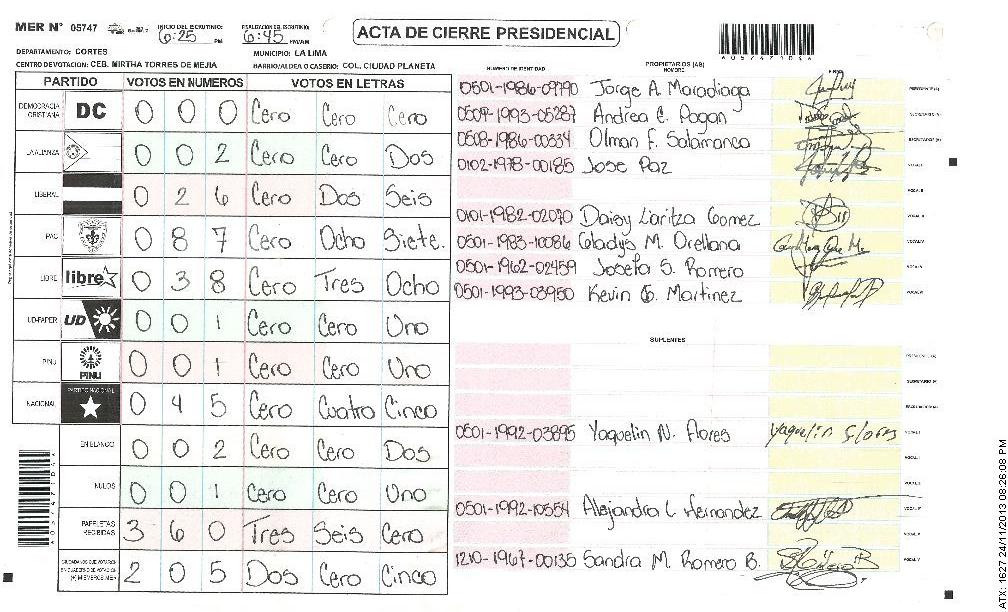 MER N° 05747 INICIO DEL ESCRUTINIO: 6:25 PM FINALIZACION DEL ESCRUTINIO: 6:45 PM/AM
ACTA DE CIERRE PRESIDENCIAL
DEPARTAMENTO: CORTES MUNICIPIO: LA LIMA
CENTRO DE VOTACION: CEB. MIRTHA TORRES DE MEJIA BARRIO/ALDEA O CASERIO: COL. CIUDAD PLANETA
PARTIDO VOTOS EN NUMEROS VOTOS EN LETRAS
DEMOCRACIA CRISTIANA DC 0 0 0 Cero Cero Cero
LA ALIANZA 0 0 2 Cero Cero Dos
LIBERAL 0 2 6 Cero Dos Seis
PAC 0 8 7 Cero Ocho Siete.
LIBRE libre 0 3 8 Cero Tres Ocho
UD-FAPER UD 0 0 1 Cero Cero Uno
PINU PINU 0 0 1 Cero Cero Uno
NACIONAL PARTIDO NACIONAL 0 4 5 Cero Cuatro Cinco
EN BLANCO 0 0 2 Cero Cero Dos
NULOS 0 0 1 Cero Cero Uno
PAPELETAS RECIBIDAS 3 6 0 Tres Seis Cero
CIUDADANOS QUE VOTARON (+) MIEMBROS MER 2 0 5 Dos Cero Cinco
PROPIETARIOS (AS)
NUMERO DE IDENTIDAD NOMBRE FIRMA
0501-1986-09790 Jorge A. Maradiaga PRESIDENTE (A)
0509-1993-05287 Andrea C. Pagan SECRETARIO (A)
0508-1986-00334 Olman F. Salamanca ESCRUTADOR (A)
0102-1978-00185 Jose Paz VOCAL I
VOCAL II
0101-1982-02070 Daisy Laritza Gomez VOCAL III
0501-1983-10086 Gladys M. Orellana VOCAL IV
0501-1962-02459 Josefa S. Romero VOCAL V
0501-1993-03950 Kevin G. Martinez
SUPLENTES
PRESIDENTE (A)
SECRETARIO (A)
ESCRUTADOR (A)
0501-1992-03895 Yaquelin N. Flores Yaquelin Flores VOCAL I
VOCAL II
VOCAL III
0501-1992-10554 Alejandro L Hernandez VOCAL IV
1210-1967-00135 Sandra M. Romero B.
ATX: 1627 24/11/2013 08:26:08 PM